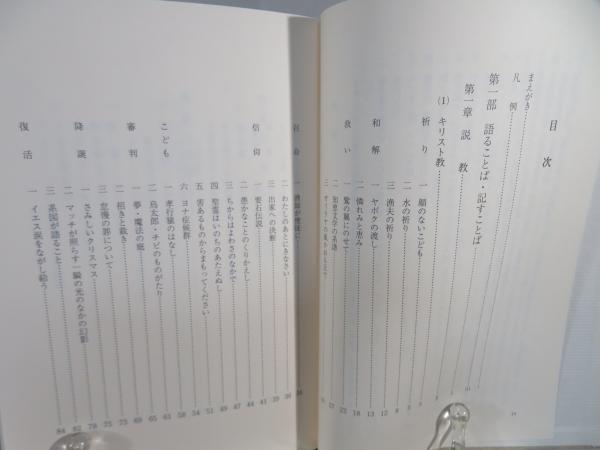 目次
まえがき
凡例
第一部 語ることば・記すことば
第一章 説教
(1) キリスト教
祈り
一 顔のないこども
二 水の祈り
三 漁夫の祈り
和解
一 ヤボクの渡し 12
二 憐れみと恵み 13
救い
一 鷲の翼にのせて 18
二 知恵文学の系譜 22
二 わたしのあとにきなさい
三 出家への決断 39
信仰
一 要石伝説 41
二 愚かなことのくりかえし 44
三 ちからはよわさのなかで 47
四 聖霊はいのちのあたえぬし 49
五 害あるものからまもってください 51
六 ヨナ症候群 54
こども
一 孝行猿のはなし 58
二 烏太郎・チビのものがたり 61
審判
一 夢・魔法の瓶 65
二 招きと裁き 69
三 怠慢の罪について 73
降誕
一 さみしいクリスマス 75
二 マッチが照らす一瞬の光のなかの幻影 78
三 系図が語ること 82
復活
一 イエス涙をながし給う 84